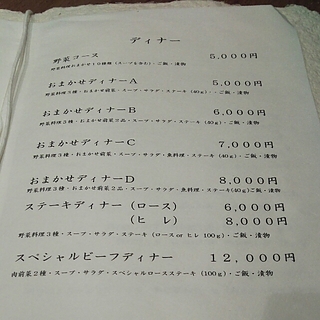 ディナー
野菜コース 5,000円
野菜料理おまかせ10種類(スープを含む)・ご飯・漬物
おまかせディナーA 5,000円
野菜料理3種・おまかせ前菜・スープ・サラダ・ステーキ(40g)・ご飯・漬物
おまかせディナーB 6,000円
野菜料理3種・おまかせ前菜2品・スープ・サラダ・ステーキ(40g)・ご飯・漬物
おまかせディナーC 7,000円
野菜料理3種・おまかせ前菜・スープ・サラダ・魚料理・ステーキ(40g)・ご飯・漬物
おまかせディナーD 8,000円
野菜料理3種・おまかせ前菜2品・スープ・サラダ・魚料理・ステーキ(40g)ご飯・漬物
ステーキディナー(ロース) 6,000円
(ヒレ) 8,000円
野菜料理3種・スープ・サラダ・ステーキ(ロース or ヒレ 100g)・ご飯・漬物
スペシャルビーフディナー 12,000円
肉前菜2種・スープ・サラダ・スペシャルロースステーキ(100g)・ご飯・漬物